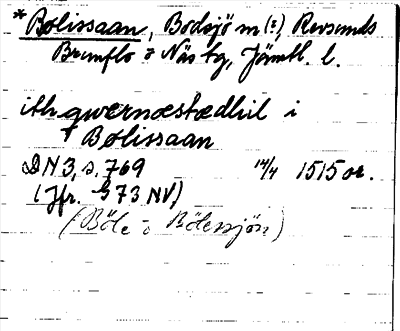 * Bolissaan, Bodsjö sn (?), Revsunds
Brunflo o Näs tg, Jämtl. l.
ith qwernæstædhil i
Bølissaan
DN 3, s. 769 14/4 1515 or.
(Jfr. § 73 NV)
(Böle o Bölessjön)